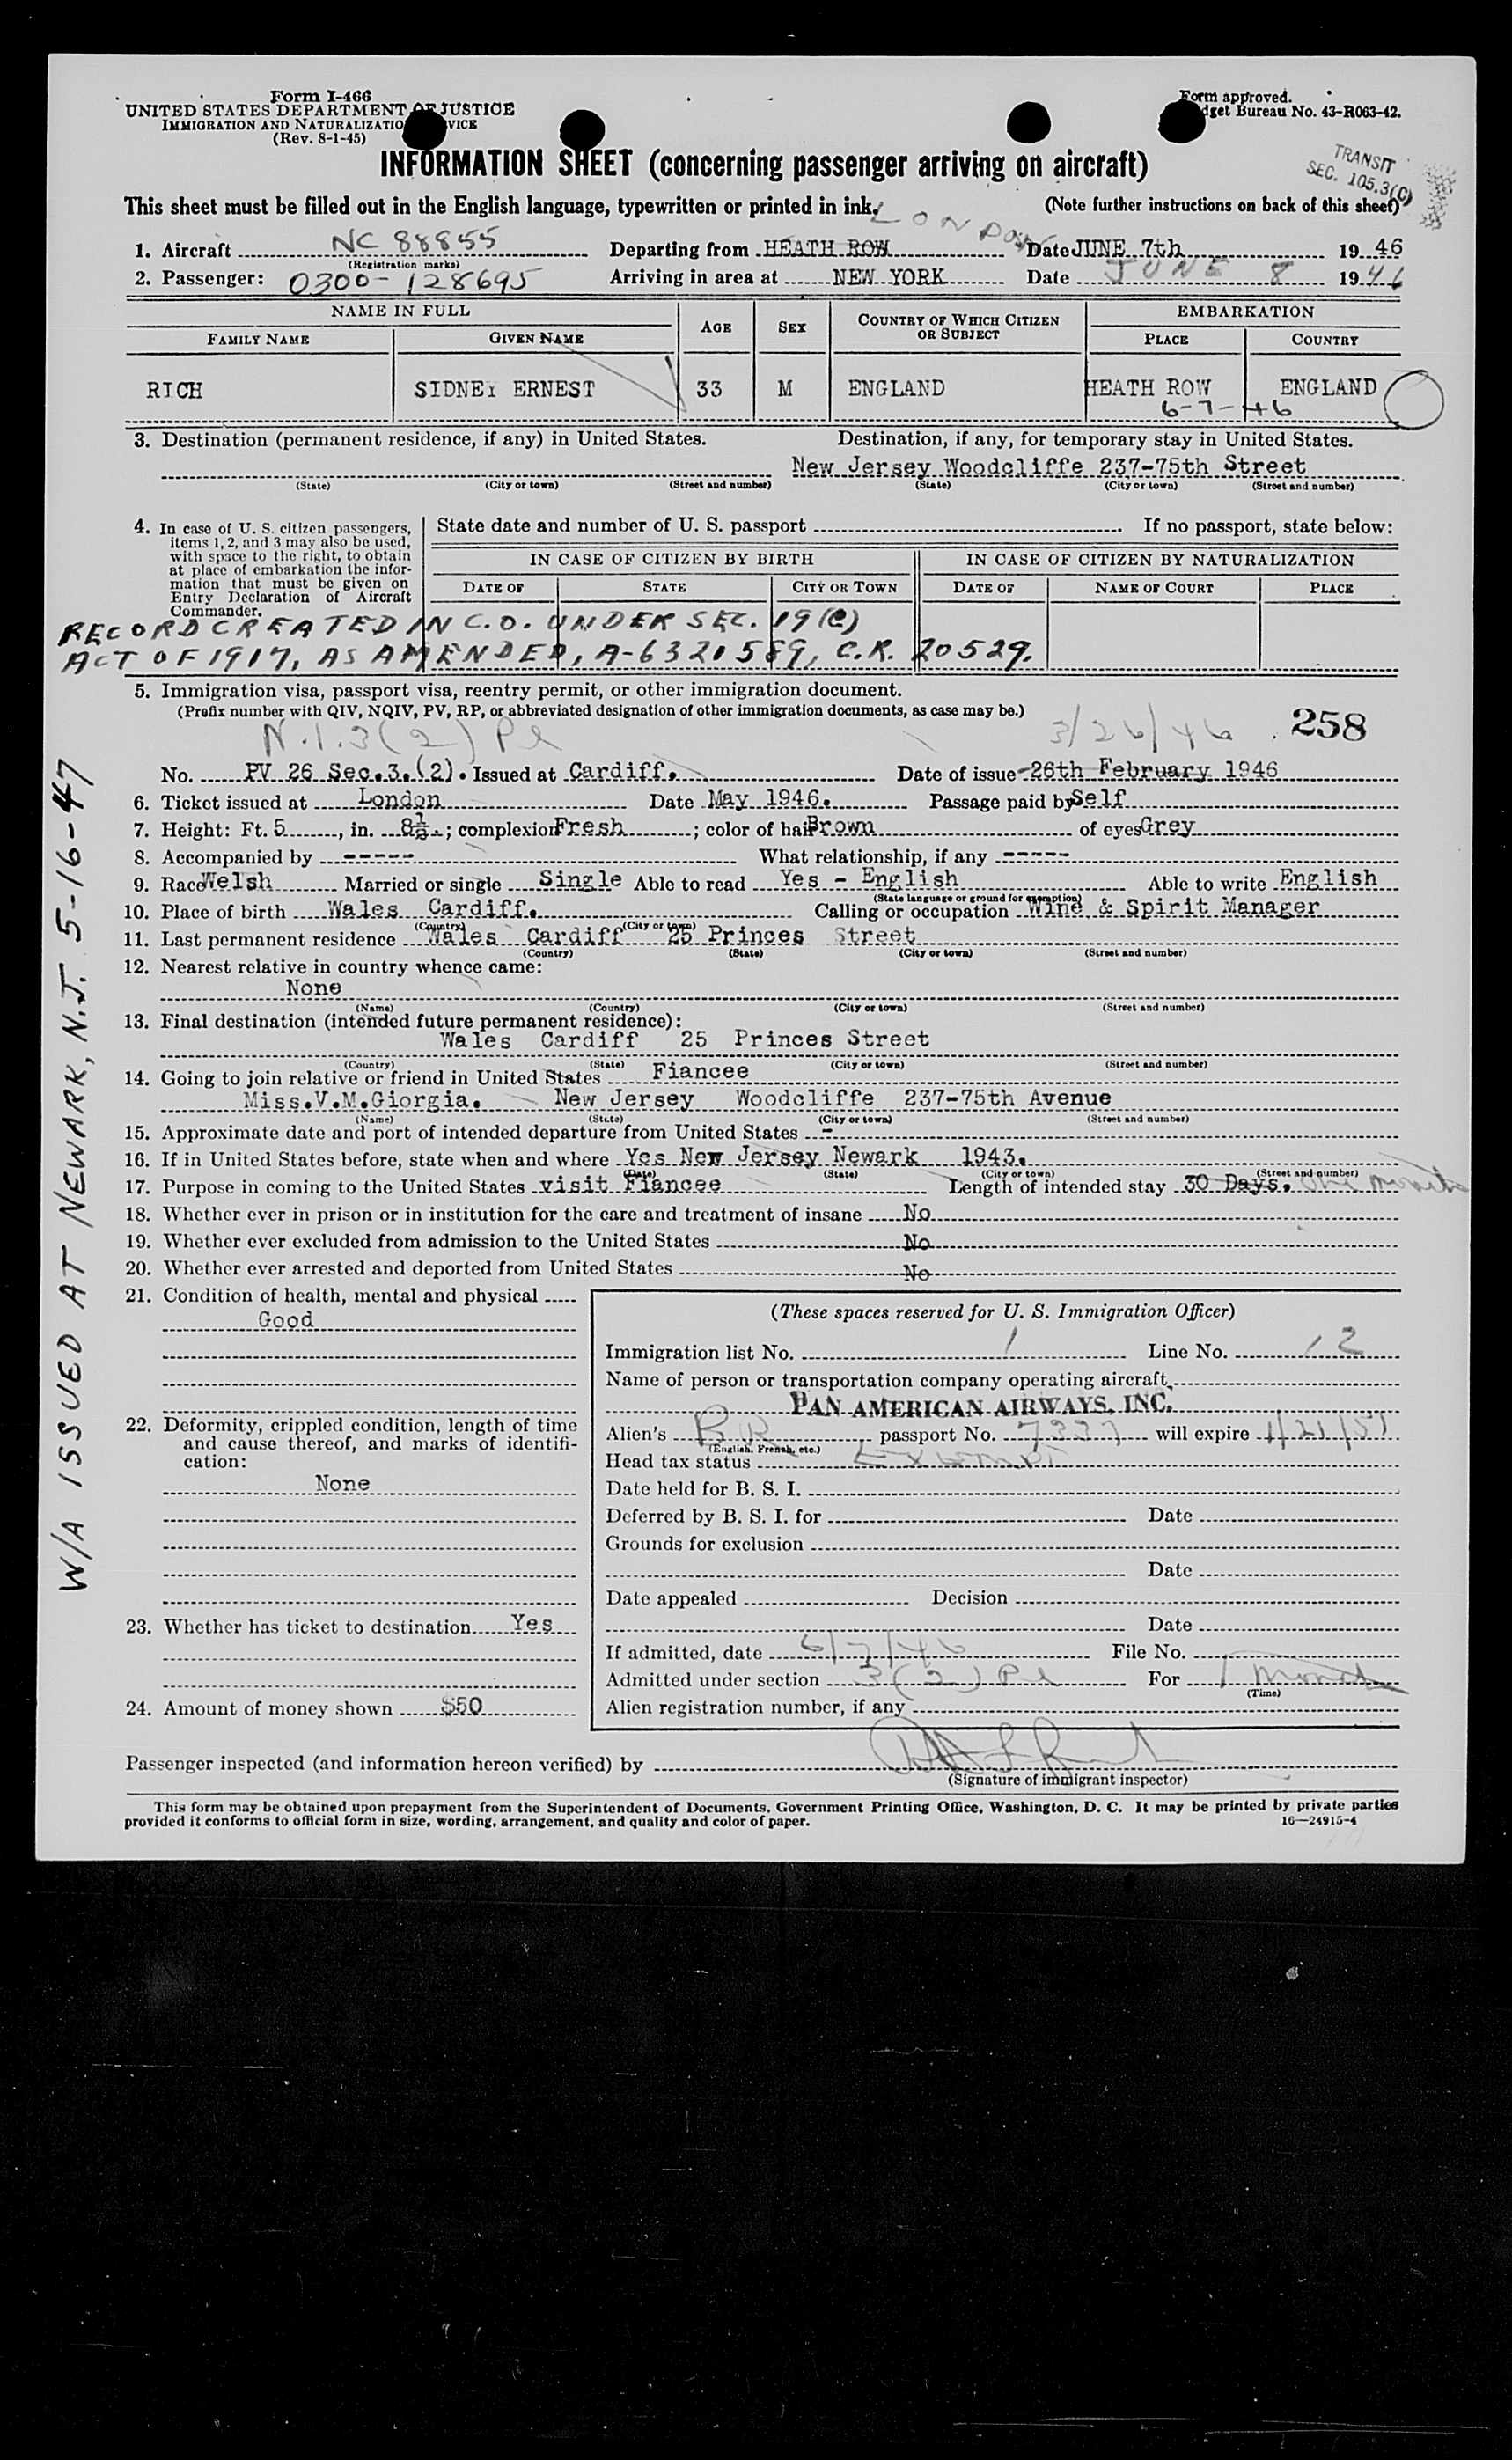 Form I-466
UNITED STATES DEPARTMENT OF JUSTICE
IMMIGRATION AND NATURALIZATIO VICE
(Rev. 8-1-45)
Form approved.
dget Bureau No. 43-R063-42.
INFORMATION SHEET (concerning passenger arriving on aircraft)
TRANSIT
SEC. 105.3(C)
This sheet must be filled out in the English language, typewritten or printed in ink. (Note further instructions on back of this sheet)
LONDON
1. Aircraft NC 88855 Departing from HEATH ROW Date JUNE 7th 19 46
(Registration marks)
2. Passenger: 0300-128695 Arriving in area at NEW YORK Date JUNE 8 19 46
NAME IN FULL AGE SEX COUNTRY OF WHICH CITIZEN OR SUBJECT EMBARKATION
FAMILY NAME GIVEN NAME PLACE COUNTRY
RICH SIDNEY ERNEST 33 M ENGLAND HEATH ROW ENGLAND
6-7-46
3. Destination (permanent residence, if any) in United States. Destination, if any, for temporary stay in United States.
New Jersey Woodcliffe 237-75th Street
(State) (City or town) (Street and number) (State) (City or town) (Street and number)
4. In case of U. S. citizen passengers, items 1, 2, and 3 may also be used, with space to the right, to obtain at place of embarkation the information that must be given on Entry Declaration of Aircraft Commander.
State date and number of U. S. passport If no passport, state below:
IN CASE OF CITIZEN BY BIRTH IN CASE OF CITIZEN BY NATURALIZATION
DATE OF STATE CITY OR TOWN DATE OF NAME OF COURT PLACE
RECORD CREATED IN C.O. UNDER SEC. 19(C)
ACT OF 1917, AS AMENDED, A-6321589, C.R. 20529.
5. Immigration visa, passport visa, reentry permit, or other immigration document.
(Prefix number with QIV, NQIV, PV, RP, or abbreviated designation of other immigration documents, as case may be.)
N.I.3(2) Pl 3/26/46 258
No. PV 26 Sec.3.(2). Issued at Cardiff. Date of issue 26th February 1946
6. Ticket issued at London Date May 1946. Passage paid by Self
7. Height: Ft. 5, in. 8½.; complexion Fresh; color of hair Brown of eyes Grey
8. Accompanied by ----- What relationship, if any -----
9. Race Welsh Married or single Single Able to read Yes - English Able to write English
(State language or ground for exemption)
10. Place of birth Wales Cardiff. Calling or occupation Wine & Spirit Manager
(Country) (City or town)
11. Last permanent residence Wales Cardiff 25 Princes Street
(Country) (State) (City or town) (Street and number)
12. Nearest relative in country whence came:
None
(Name) (Country) (City or town) (Street and number)
13. Final destination (intended future permanent residence):
Wales Cardiff 25 Princes Street
(Country) (State) (City or town) (Street and number)
14. Going to join relative or friend in United States Fiancee
Miss.V.M.Giorgia. New Jersey Woodcliffe 237-75th Avenue
(Name) (State) (City or town) (Street and number)
15. Approximate date and port of intended departure from United States -
16. If in United States before, state when and where Yes New Jersey Newark 1943.
(Date) (State) (City or town) (Street and number)
17. Purpose in coming to the United States visit Fiancee Length of intended stay 30 Days. One month
18. Whether ever in prison or in institution for the care and treatment of insane No
19. Whether ever excluded from admission to the United States No
20. Whether ever arrested and deported from United States No
21. Condition of health, mental and physical
Good
22. Deformity, crippled condition, length of time and cause thereof, and marks of identification:
None
23. Whether has ticket to destination Yes
24. Amount of money shown $50
(These spaces reserved for U. S. Immigration Officer)
Immigration list No. 1 Line No. 12
Name of person or transportation company operating aircraft
PAN AMERICAN AIRWAYS, INC.
Alien's BR passport No. 7337 will expire 1/21/51
(English, French, etc.)
Head tax status Exempt
Date held for B. S. I.
Deferred by B. S. I. for Date
Grounds for exclusion
Date
Date appealed Decision
Date
If admitted, date 6/7/46 File No.
Admitted under section 3(2) Pl For 1 month
(Time)
Alien registration number, if any
Passenger inspected (and information hereon verified) by
(Signature of immigrant inspector)
This form may be obtained upon prepayment from the Superintendent of Documents, Government Printing Office, Washington, D. C. It may be printed by private parties
provided it conforms to official form in size, wording, arrangement, and quality and color of paper. 16—24915-4
W/A ISSUED AT NEWARK, N.J. 5-16-47